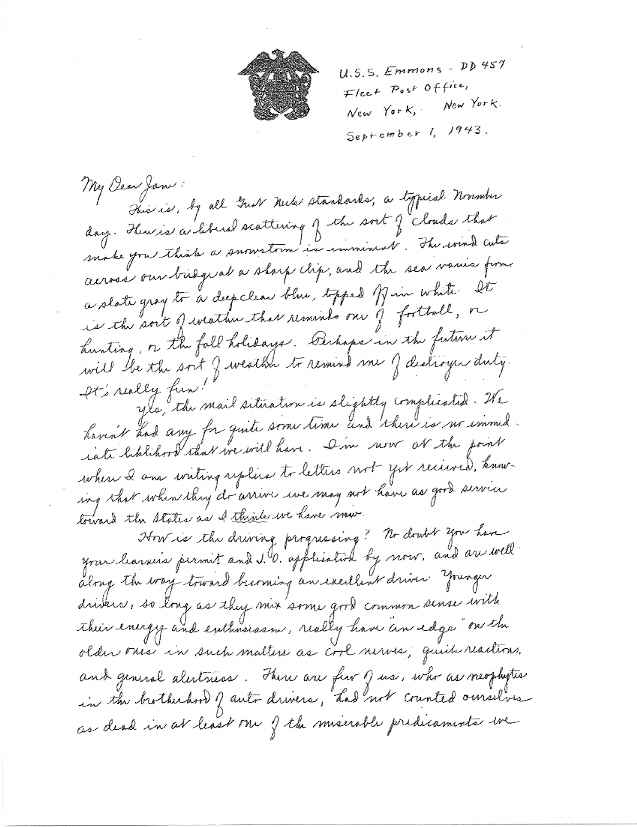 U.S.S. Emmons - DD 457
Fleet Post Office,
New York, New York.
September 1, 1943.
My Dear Jane:
This is, by all Great Neck standards, a typical November
day. Here is a liberal scattering of the sort of clouds that
make you think a snowstorm is imminent. The wind cuts
across our bridge at a sharp clip, and the sea varies from
a slate gray to a deep clear blue, topped off in white. It
is the sort of weather that reminds one of football, or
hunting, or the fall holidays. Perhaps in the future it
will be the sort of weather to remind me of destroyer duty.
It's really fun!
Yes, the mail situation is slightly complicated. We
haven't had any for quite some time and there is no immed-
iate liklihood that we will have. I'm now at the point
where I am writing replies to letters not yet recieved, know-
ing that when they do arrive we may not have as good service
toward the States as I think we have now.
How is the driving progressing? No doubt you have
your learner's permit and application by now, and are well
along the way toward becoming an excellent driver. Younger
drivers, so long as they mix some good common sense with
their energy and enthusiasm, really have "an edge" on the
older ones in such matters as cool nerves, quick reactions,
and general alertness. There are few of us, who as neophytes
in the brotherhood of auto drivers, had not counted ourselves
as dead in at least one of the miserable predicaments we